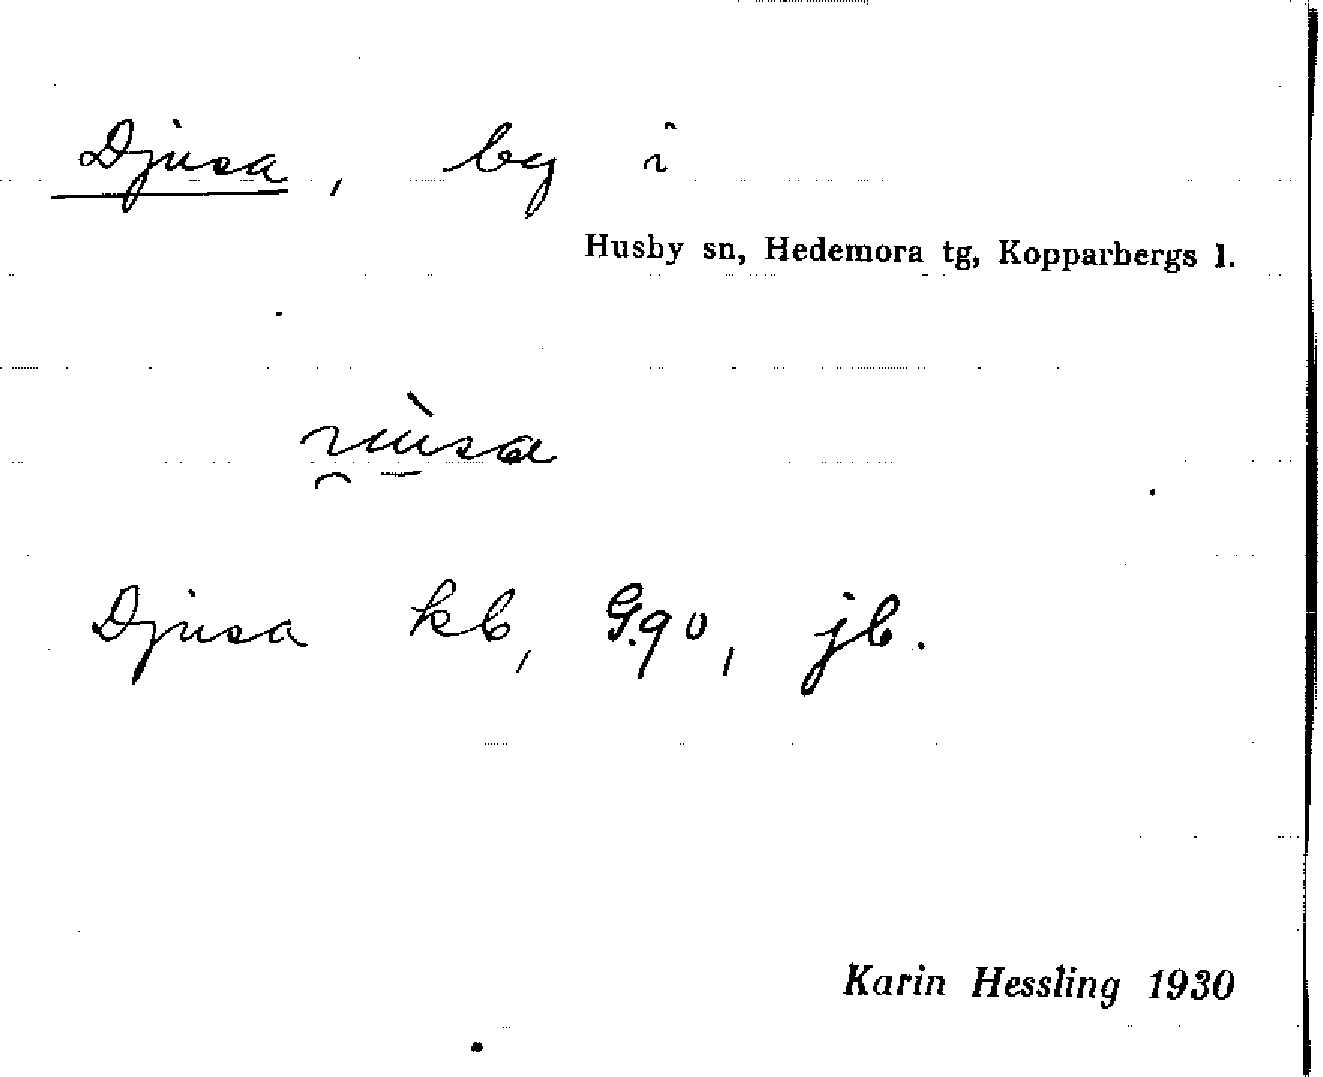 Djusa, by i
Husby sn, Hedemora tg, Kopparbergs l.
Djusa kb, G.90, jb.
Karin Hessling 1930